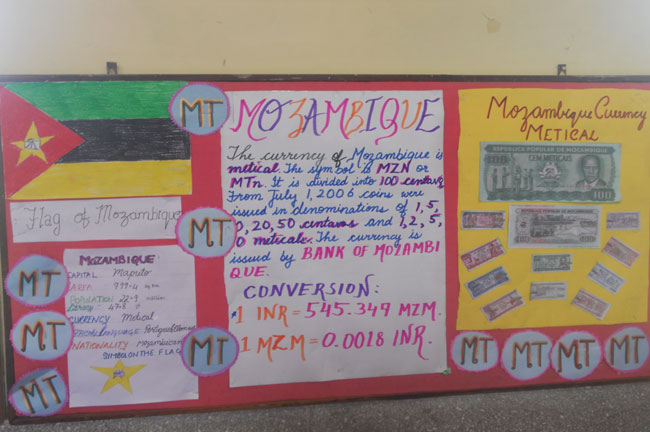 MT
MOZAMBIQUE
The currency of Mozambique is
metical The symbol is MZN or
MTn. It is divided into 100 centavos
From July 1, 2006 coins were
issued in denominations of 1, 5,
0, 20, 50 centavos and 1, 2, 5,
0 meticals. The currency is
issued by BANK OF MOZAMBI
QUE.
CONVERSION:
1 INR = 545.349 MZM.
1 MZM = 0.0018 INR.
Mozambique Currency
METICAL
REPUBLICA POPULAR DE MOCAMBIQUE
CEM METICAIS
100
Flag of Mozambique
MT
MOZAMBIQUE
CAPITAL Maputo
AREA
POPULATION 22.9 million
Literacy 47.8
CURRENCY Metical
LANGUAGE
NATIONALITY Mozambican
SYMBOL ON THE FLAG
MT
MT
MT
MT
MT
MT
MT
MT